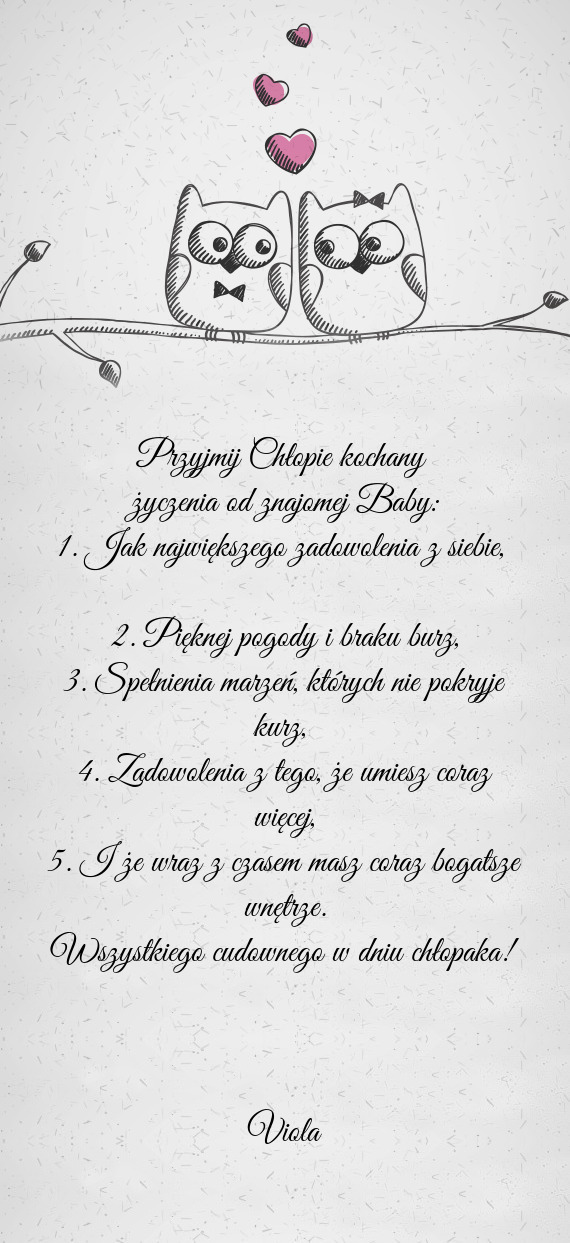 Przyjmij Chłopie kochany
życzenia od znajomej Baby:
1. Jak największego zadowolenia z siebie,
2. Pięknej pogody i braku burz,
3. Spełnienia marzeń, których nie pokryje
kurz,
4. Zadowolenia z tego, że umiesz coraz
więcej,
5. I że wraz z czasem masz coraz bogatsze
wnętrze.
Wszystkiego cudownego w dniu chłopaka!
Viola